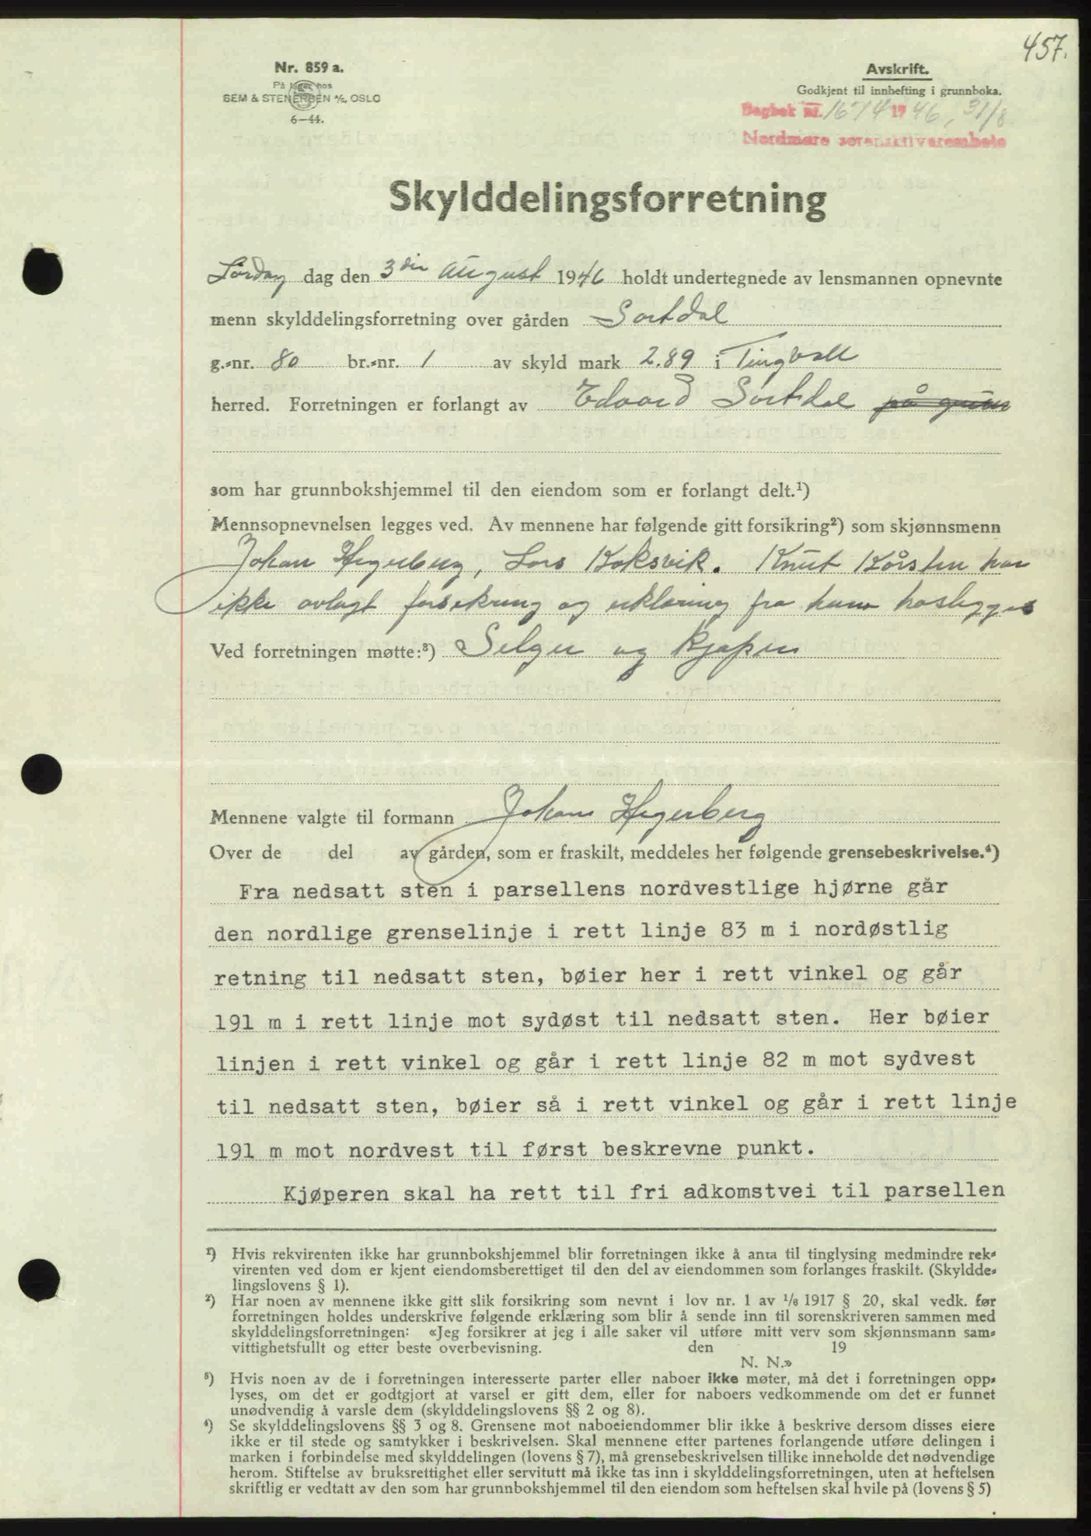 457.
Nr. 859 a.
På lager hos
SEM & STENERSEN A/S, OSLO
6-44.
Avskrift.
Godkjent til innhefting i grunnboka.
Dagbok nr. 1674 1946, 31/8
Nordmøre sorenskriverembete
Skylddelingsforretning
Lørdag dag den 3die august 1946 holdt undertegnede av lensmannen opnevnte
menn skylddelingsforretning over gården Sortdal
g.-nr. 80 br.-nr. 1 av skyld mark 2.89 i Tingvoll
herred. Forretningen er forlangt av Edvard Sortdal på grunn
som har grunnbokshjemmel til den eiendom som er forlangt delt.¹)
Mennsopnevnelsen legges ved. Av mennene har følgende gitt forsikring²) som skjønnsmenn
Johan Hegerberg, Lars Boksvik. Knut Kårsten har
ikke avlagt forsikring og erklæring fra ham haslegges
Ved forretningen møtte:³) Selger og kjøper
Mennene valgte til formann Johan Hegerberg
Over de del av gården, som er fraskilt, meddeles her følgende grensebeskrivelse.⁴)
Fra nedsatt sten i parsellens nordvestlige hjørne går
den nordlige grenselinje i rett linje 83 m i nordøstlig
retning til nedsatt sten, bøier her i rett vinkel og går
191 m i rett linje mot sydøst til nedsatt sten. Her bøier
linjen i rett vinkel og går i rett linje 82 m mot sydvest
til nedsatt sten, bøier så i rett vinkel og går i rett linje
191 m mot nordvest til først beskrevne punkt.
Kjøperen skal ha rett til fri adkomstvei til parsellen
¹) Hvis rekvirenten ikke har grunnbokshjemmel blir forretningen ikke å anta til tinglysing medmindre rek-
virenten ved dom er kjent eiendomsberettiget til den del av eiendommen som forlanges fraskilt. (Skyldde-
lingslovens § 1).
²) Har noen av mennene ikke gitt slik forsikring som nevnt i lov nr. 1 av 1/6 1917 § 20, skal vedk. før
forretningen holdes underskrive følgende erklæring som blir å sende inn til sorenskriveren sammen med
skylddelingsforretningen: «Jeg forsikrer at jeg i alle saker vil utføre mitt verv som skjønnsmann sam-
vittighetsfullt og etter beste overbevisning. den 19
N. N.»
³) Hvis noen av de i forretningen interesserte parter eller naboer ikke møter, må det i forretningen opp-
lyses, om det er godtgjort at varsel er gitt dem, eller for naboers vedkommende om det er funnet
unødvendig å varsle dem (skylddelingslovens §§ 2 og 8).
⁴) Se skylddelingslovens §§ 3 og 8. Grensene mot naboeiendommer blir ikke å beskrive dersom disses eiere
ikke er til stede og samtykker i beskrivelsen. Skal mennene etter partenes forlangende utføre delingen i
marken i forbindelse med skylddelingen (lovens § 7), må grensebeskrivelsen tillike inneholde det nødvendige
herom. Stiftelse av bruksrettighet eller servitutt må ikke tas inn i skylddelingsforretningen, uten at heftelsen
skriftlig er vedtatt av den som har grunnbokshjemmel til den eiendom som heftelsen skal hvile på (lovens § 5)